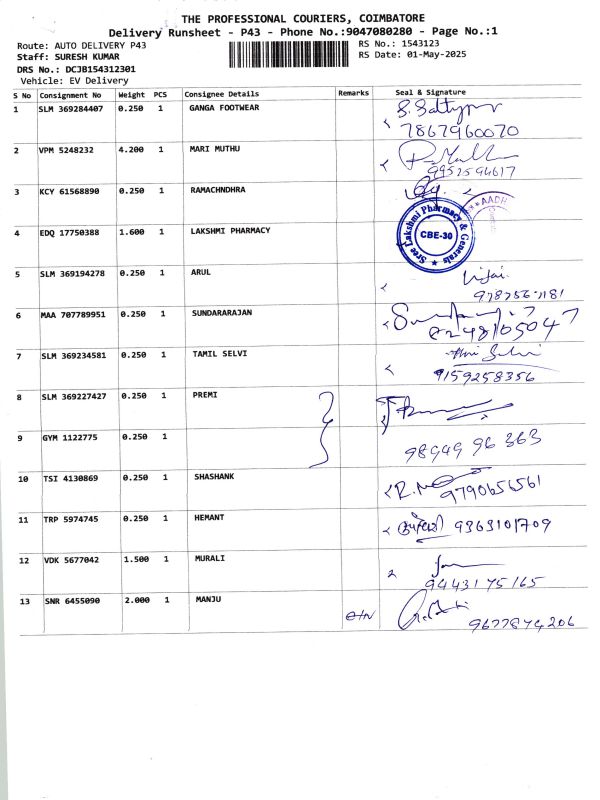 THE PROFESSIONAL COURIERS, COIMBATORE
Delivery Runsheet - P43 - Phone No.:9047080280 - Page No.:1
Route: AUTO DELIVERY P43 RS No.: 1543123
Staff: SURESH KUMAR RS Date: 01-May-2025
DRS No.: DCJB154312301
Vehicle: EV Delivery
S No Consignment No Weight PCS Consignee Details Remarks Seal & Signature
1 SLM 369284407 0.250 1 GANGA FOOTWEAR
7867960070
2 VPM 5248232 4.200 1 MARI MUTHU
9952594617
3 KCY 61568890 0.250 1 RAMACHNDHRA
AADH
Sree Lakshmi Pharmacy & Generals
CBE-30
4 EDQ 17750388 1.600 1 LAKSHMI PHARMACY
5 SLM 369194278 0.250 1 ARUL
6 MAA 707789951 0.250 1 SUNDARARAJAN
7 SLM 369234581 0.250 1 TAMIL SELVI
9159258356
8 SLM 369227427 0.250 1 PREMI
9 GYM 1122775 0.250 1
98949 96 363
10 TSI 4130869 0.250 1 SHASHANK
9790656561
11 TRP 5974745 0.250 1 HEMANT
9363101709
12 VDK 5677042 1.500 1 MURALI
9443175165
13 SNR 6455090 2.000 1 MANJU
9677874206